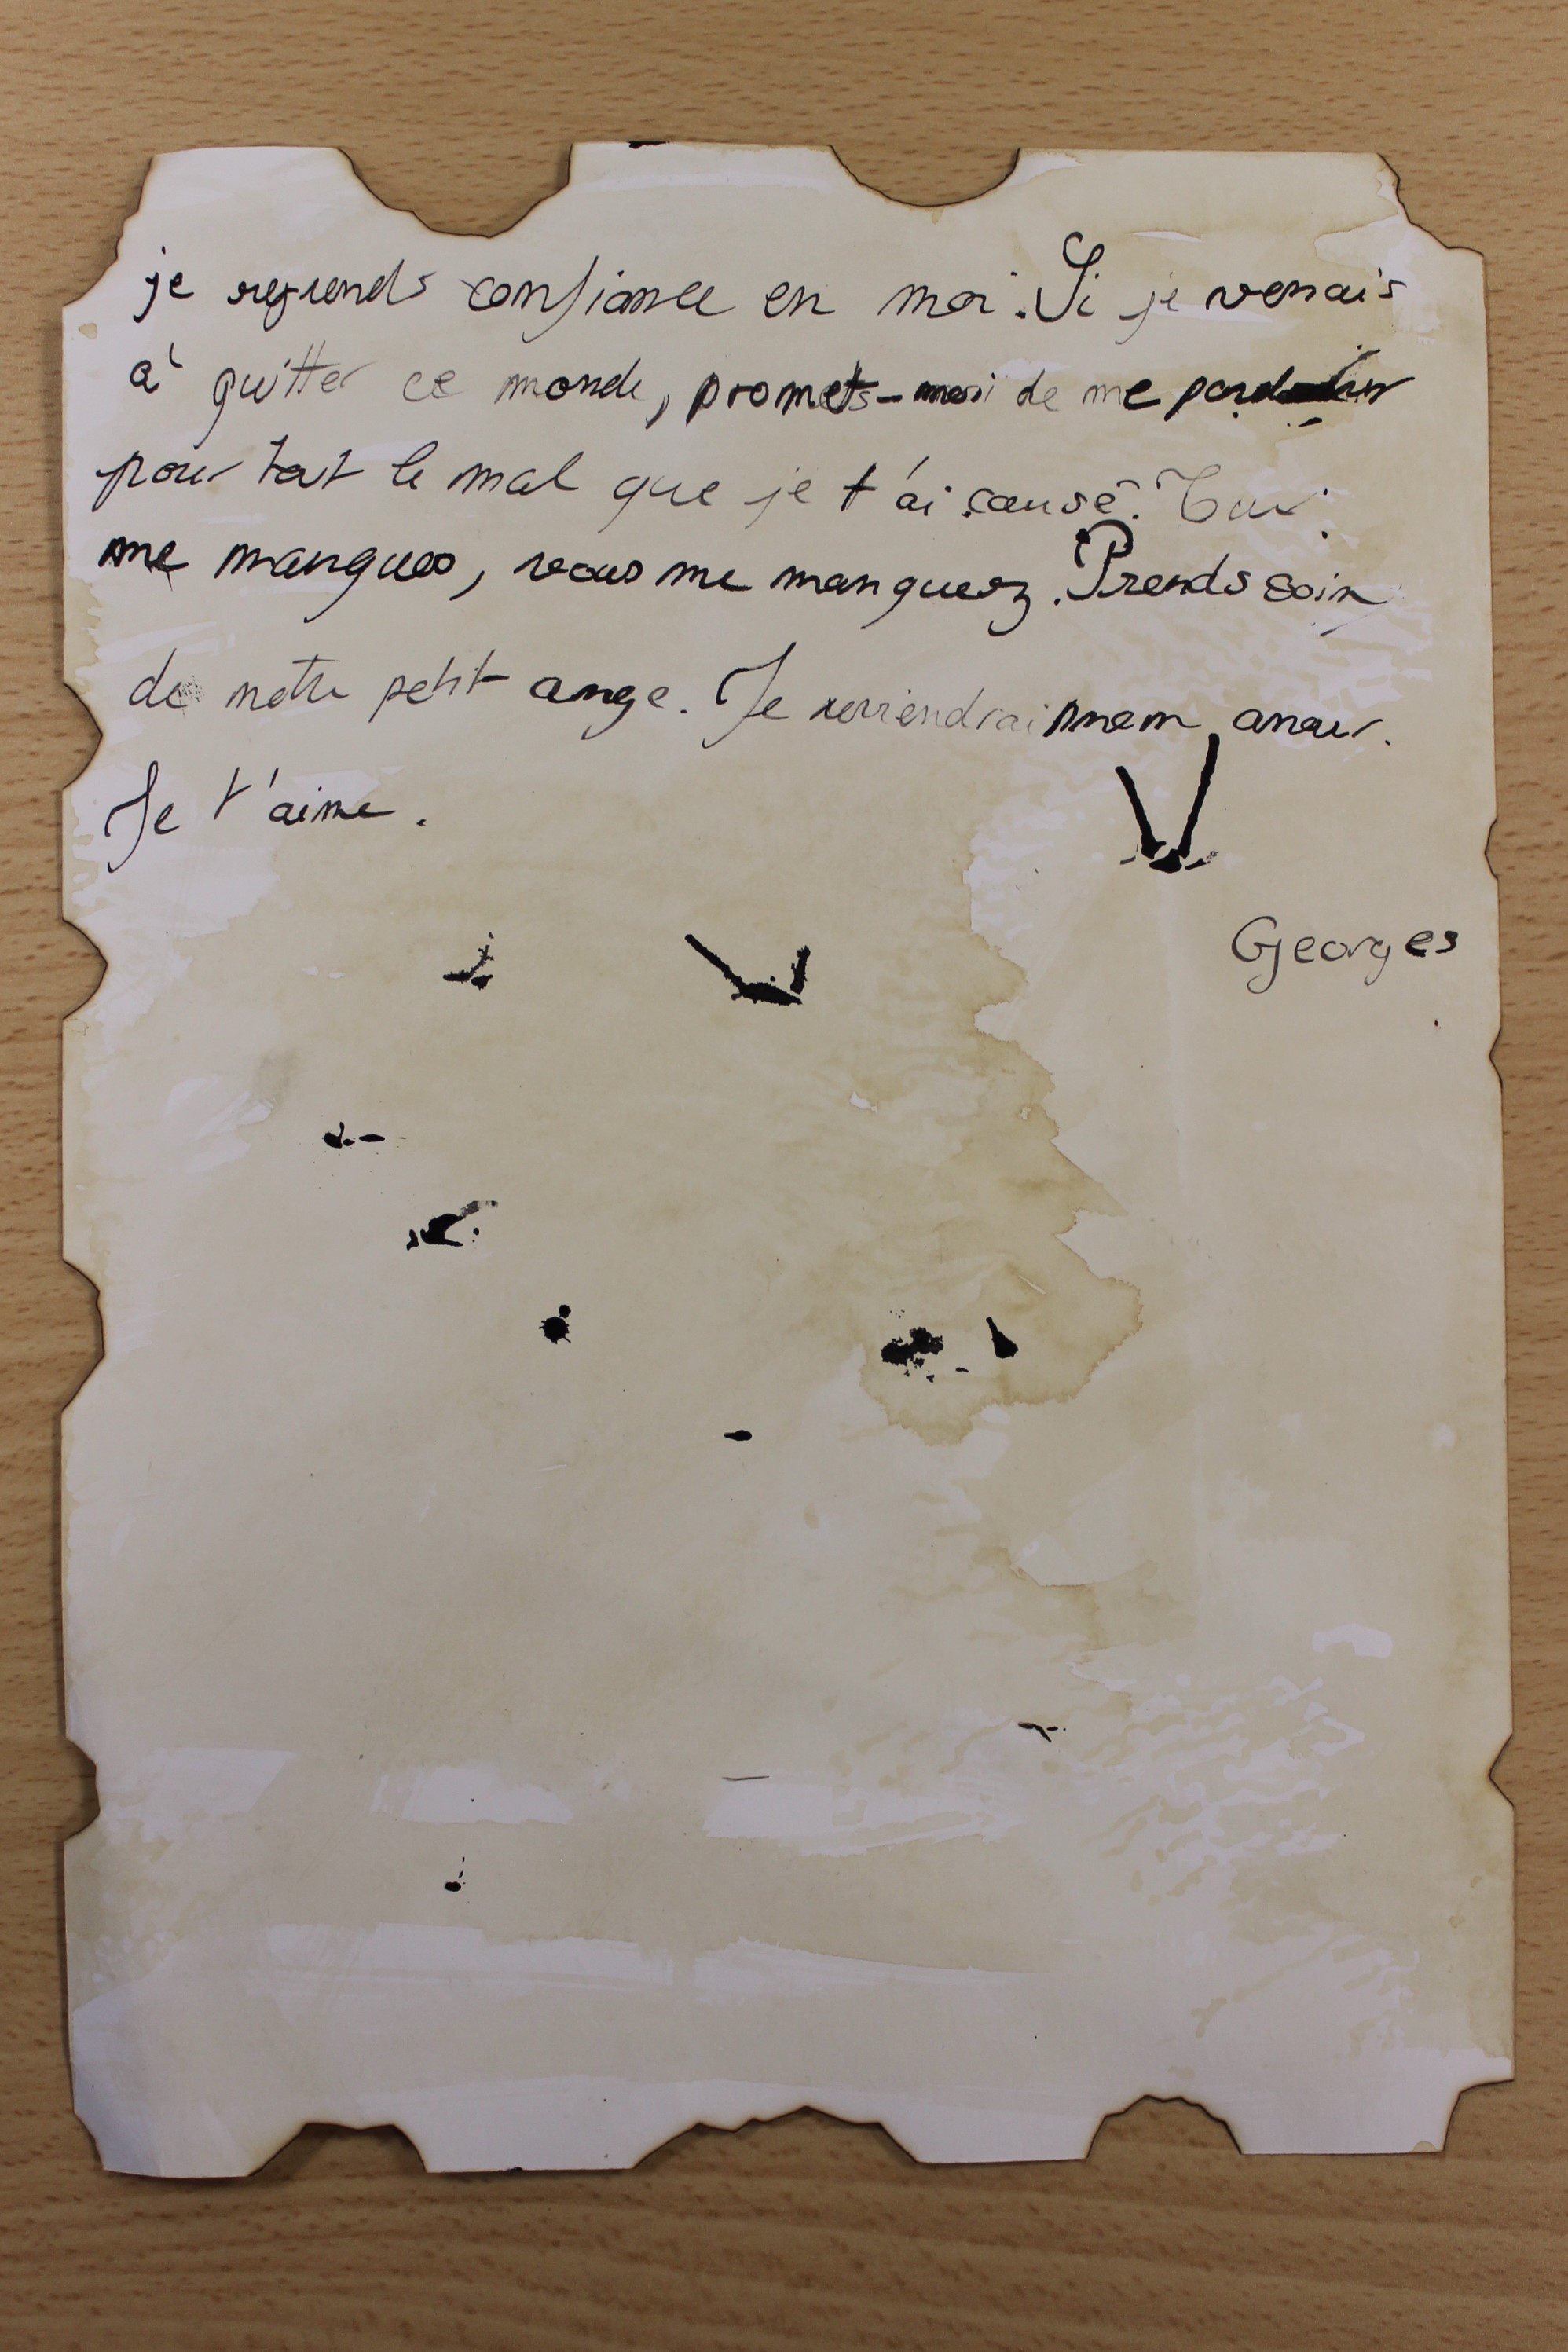 je reprends confiance en moi. Si je venais
à quitter ce monde, promets-moi de me pardonner
pour tout le mal que je t'ai causé. Tu
me manques, vous me manquez. Prends soin
de notre petit ange. Je reviendrai mon amour.
Je t'aime.
Georges